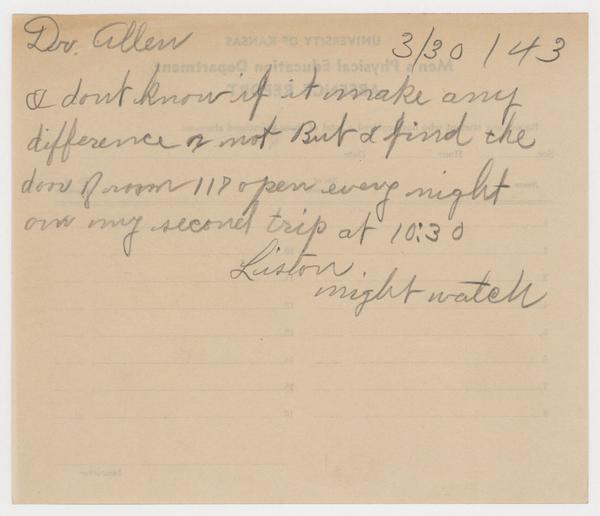 Dr. Allen 3/30/43
I dont know if it make any
difference or not But I find the
door of room 117 open every night
on my second trip at 10:30
Liston
night watch
UNIVERSITY OF KANSAS
Men's Physical Education Department
ABSENCE REPORT